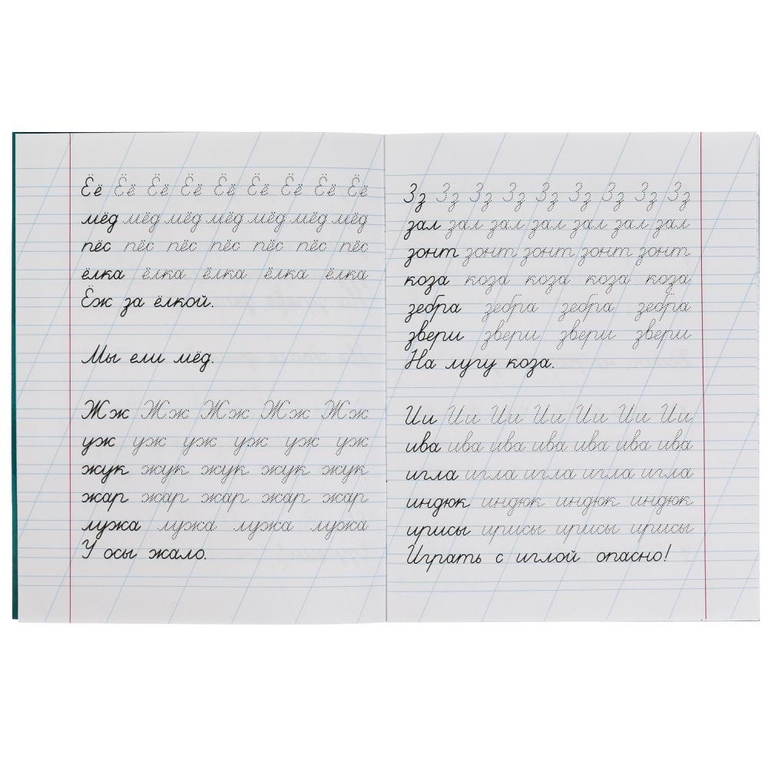 Ёё Ёё Ёё Ёё Ёё Ёё Ёё Ёё Ёё
мёд мёд мёд мёд мёд мёд мёд
пёс пёс пёс пёс пёс пёс пёс
ёлка ёлка ёлка ёлка ёлка
Ёж за ёлкой.
Мы ели мёд.
Жж Жж Жж Жж Жж
уж уж уж уж уж уж
жук жук жук жук жук
жар жар жар жар жар
лужа лужа лужа лужа
У осы жало.
Зз Зз Зз Зз Зз Зз Зз Зз Зз
зал зал зал зал зал зал зал
зонт зонт зонт зонт зонт
коза коза коза коза коза
зебра зебра зебра зебра
звери звери звери звери
На лугу коза.
Ии Ии Ии Ии Ии Ии Ии
ива ива ива ива ива ива ива
игла игла игла игла игла
индюк индюк индюк индюк
ирисы ирисы ирисы ирисы
Играть с иглой опасно!